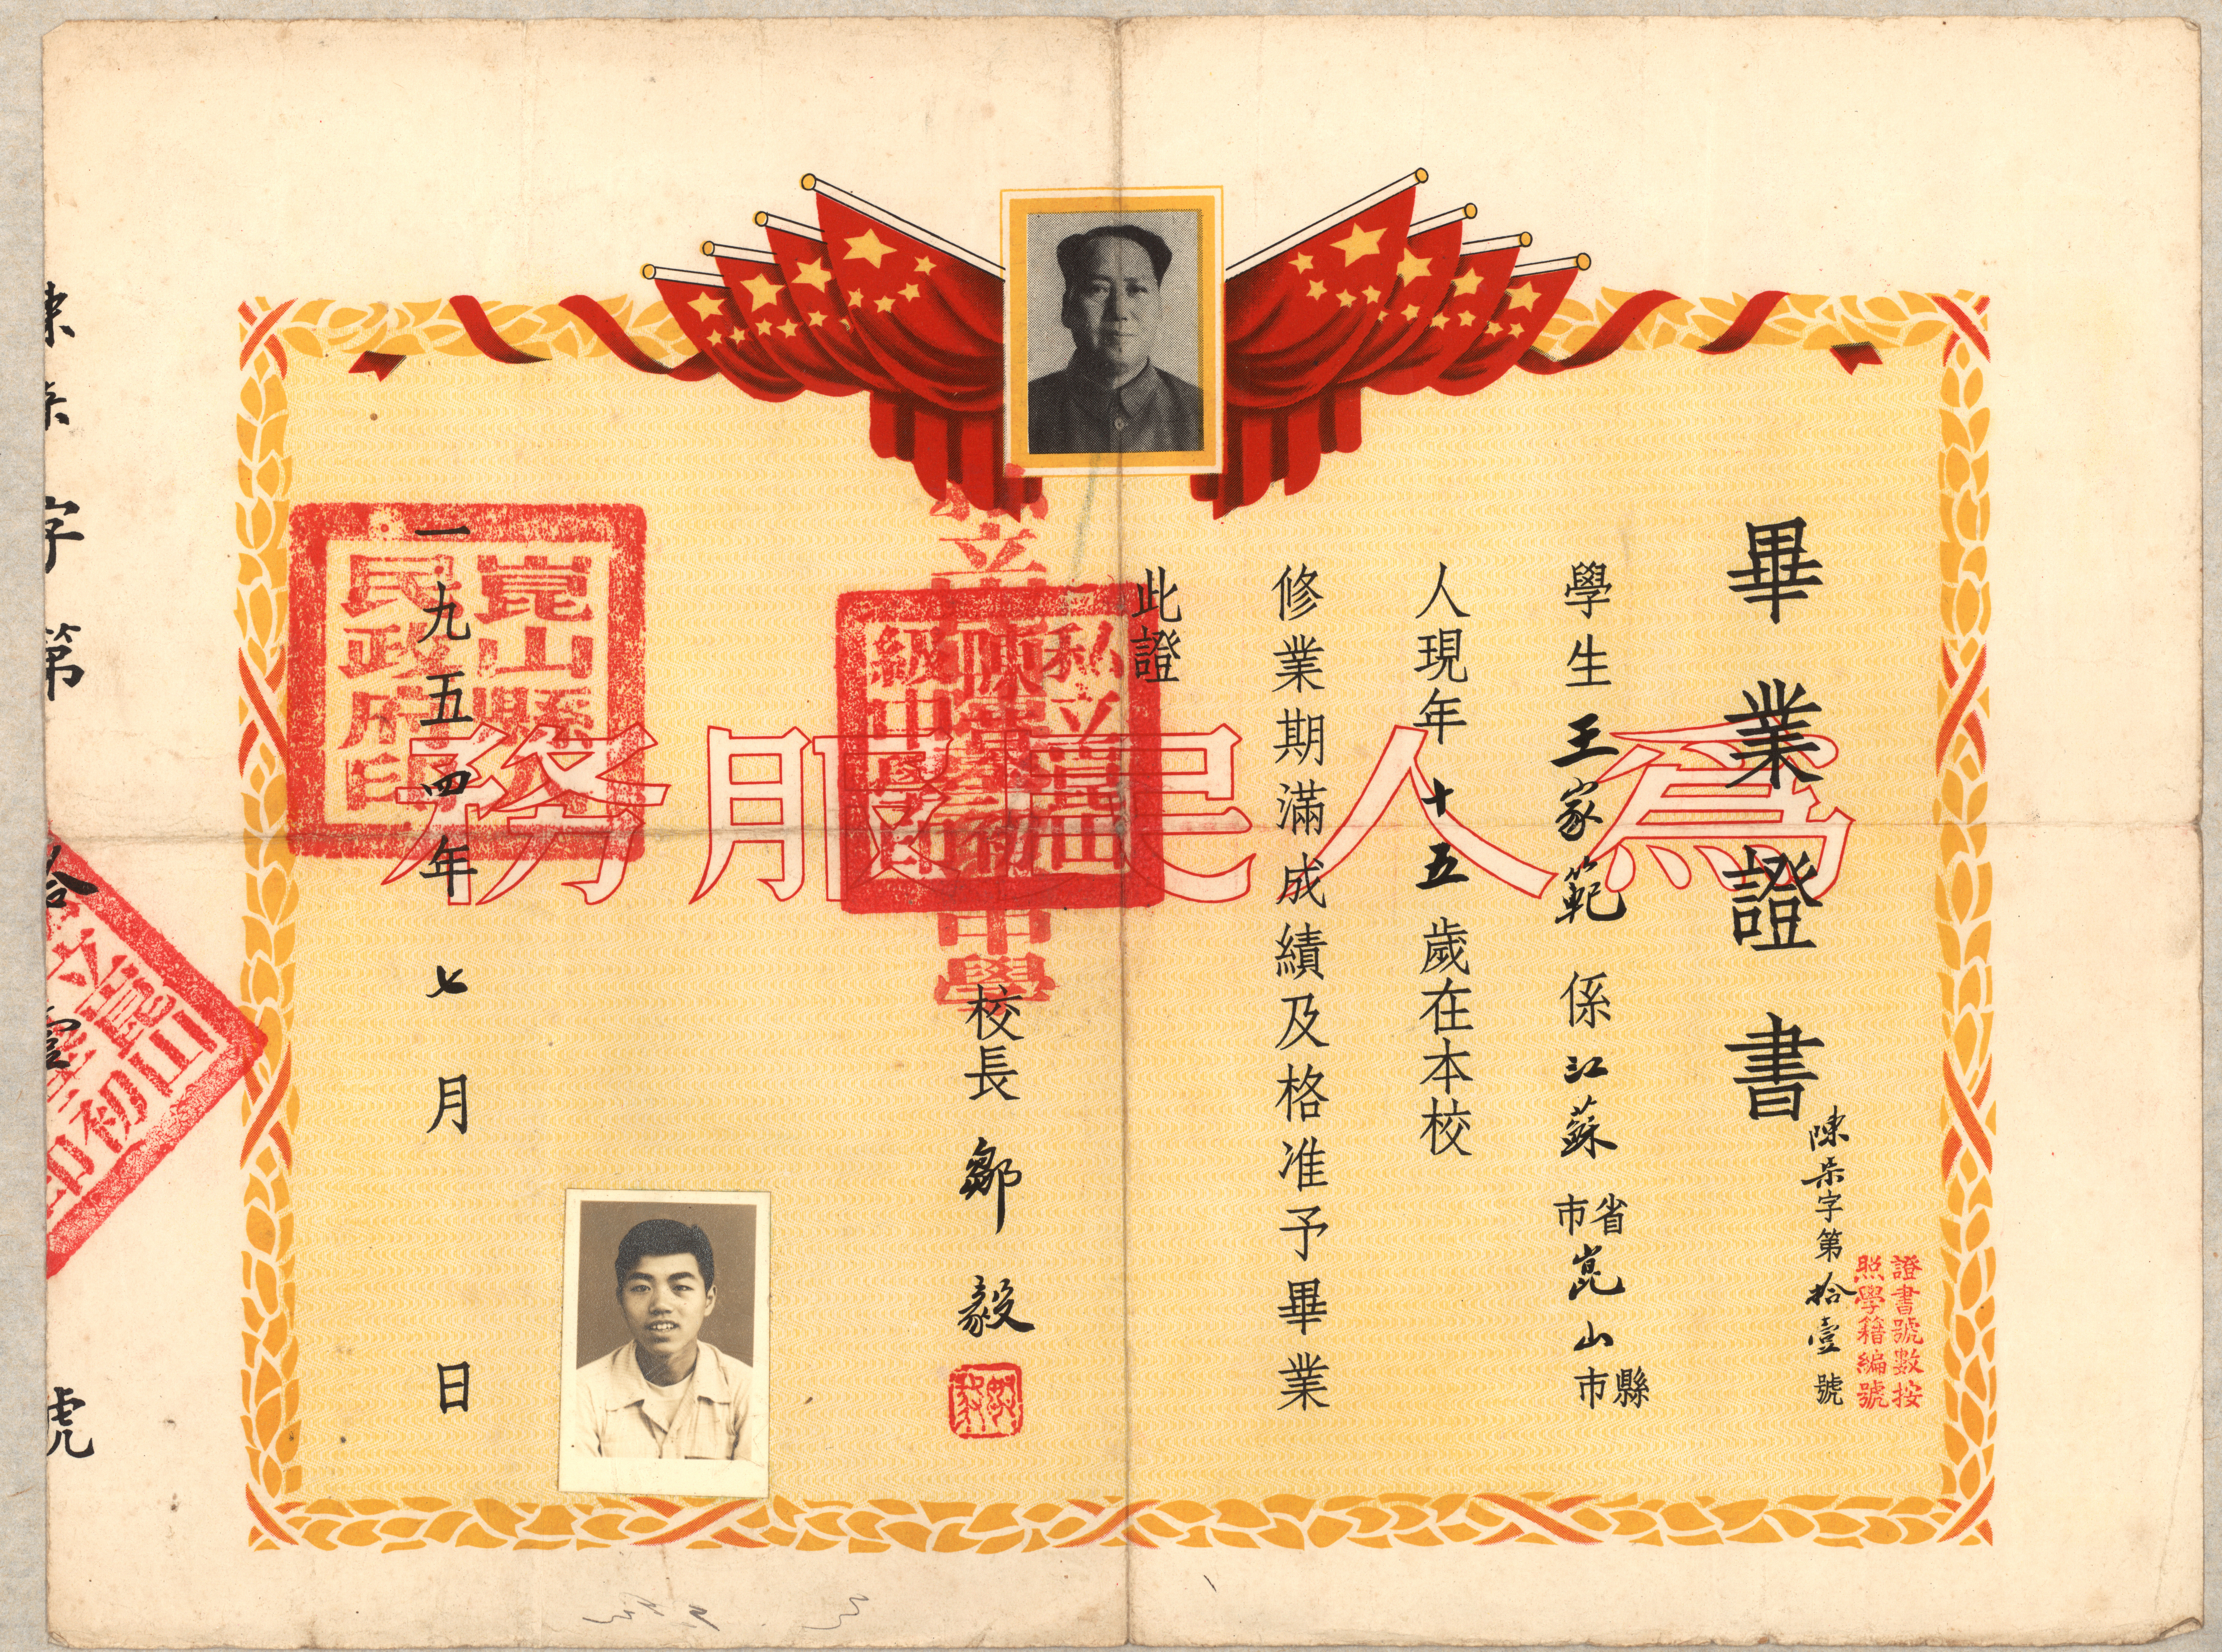 畢業證書
陳

字第拾壹號
證書號數按
照學籍編號
學生王家範係江蘇省市崑山縣市
人現年十五歲在本校
修業期滿成績及格准予畢業
此證
校長鄒毅
一九五四年七月日
為人民服務
崑山縣人
民政府印
中學
字第拾壹號